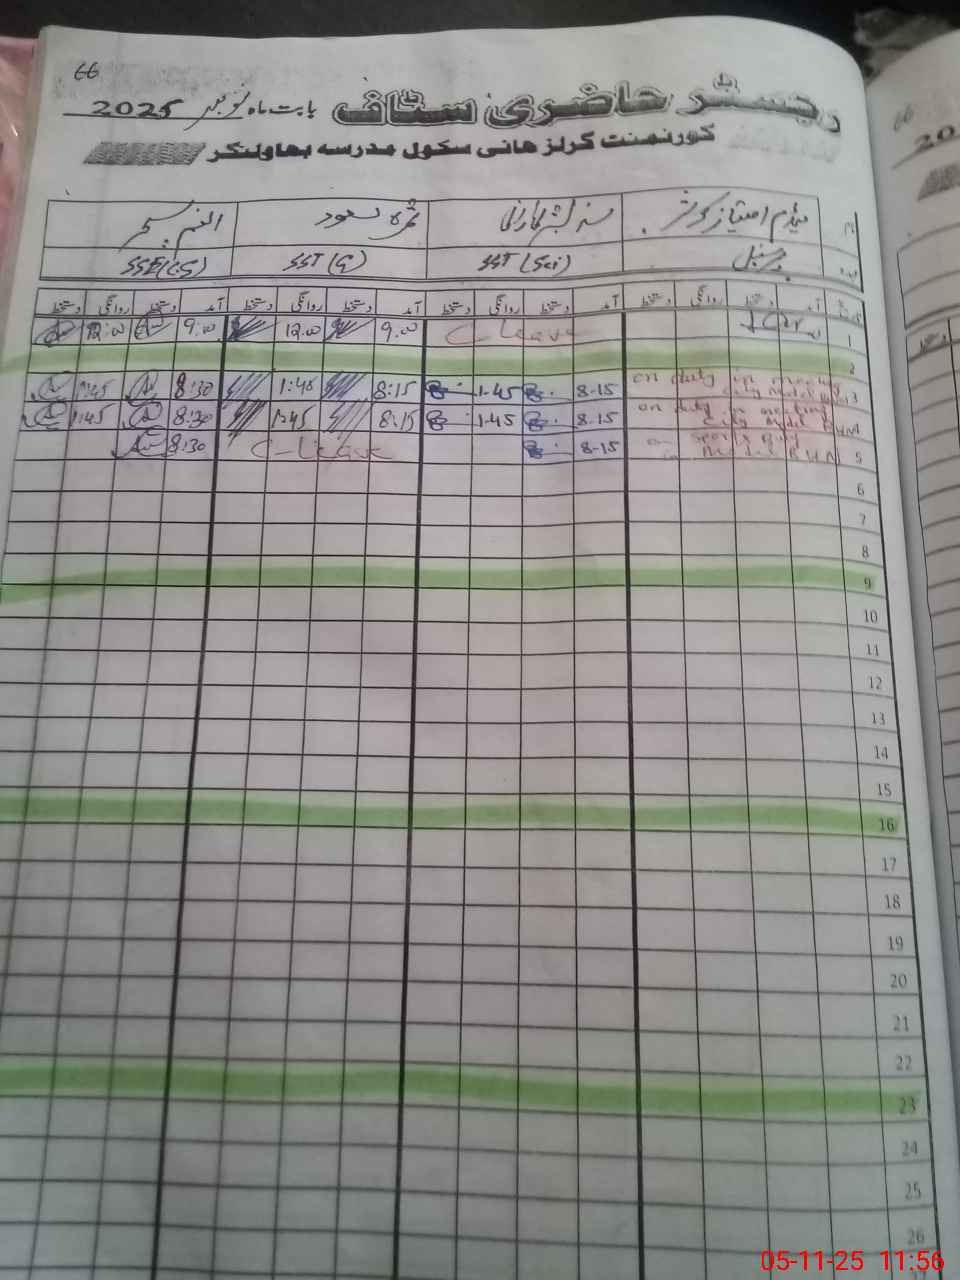 66
رجسٹر حاضری سٹاف بابت ماہ نومبر 2025
گورنمنٹ گرلز ہائی سکول مدرسہ بہاولنگر
میڈم امتیاز کوثر
SST (Sci) SST (G) SSE (CS)
آمد دستخط روانگی دستخط آمد دستخط روانگی دستخط آمد دستخط روانگی دستخط آمد دستخط روانگی دستخط
1 C-Leave 9.00 12.00 9:00 12:00
2
3 on duty in meeting City Model 8-15 1-45 8:15 1:45 8:30 1:45
4 on duty in meeting City Model BWN 8-15 1-45 8:15 1:45 8:30 1:45
5 on sports duty in Model BWN 8-15 C-Leave 8:30
6
7
8
9
10
11
12
13
14
15
16
17
18
19
20
21
22
23
24
25
26
66
20
05-11-25 11:56